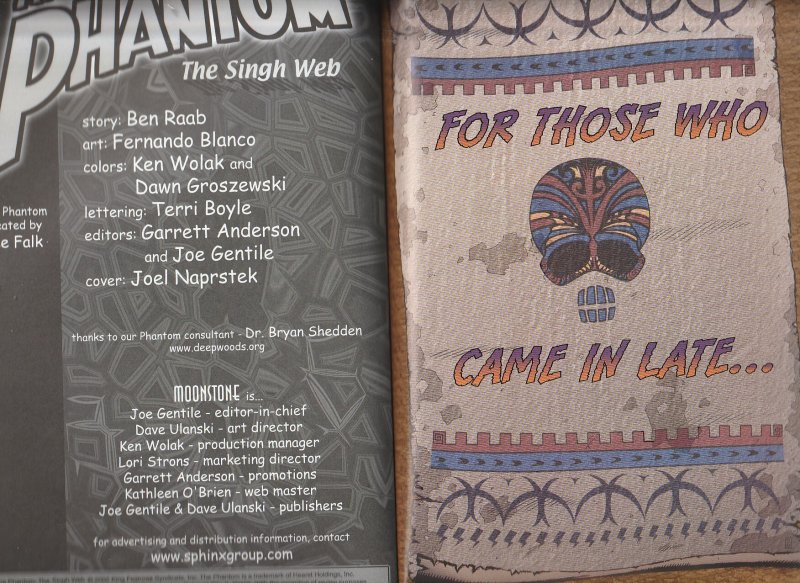 PHANTOM
The Singh Web
story: Ben Raab
art: Fernando Blanco
colors: Ken Wolak and
Dawn Groszewski
lettering: Terri Boyle
editors: Garrett Anderson
and Joe Gentile
cover: Joel Naprstek
Phantom
e Falk
thanks to our Phantom consultant - Dr. Bryan Shedden
www.deepwoods.org
MOONSTONE is...
Joe Gentile - editor-in-chief
Dave Ulanski - art director
Ken Wolak - production manager
Lori Strons - marketing director
Garrett Anderson - promotions
Kathleen O'Brien - web master
Joe Gentile & Dave Ulanski - publishers
for advertising and distribution information, contact
www.sphinxgroup.com
FOR THOSE WHO
CAME IN LATE...